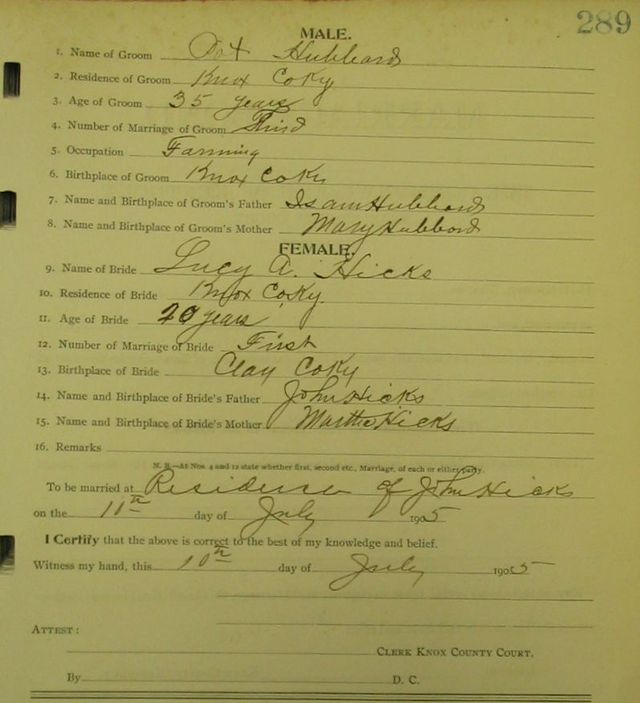 289
MALE.
1. Name of Groom Pat Hubbard
2. Residence of Groom Knox Co Ky
3. Age of Groom 35 years
4. Number of Marriage of Groom Third
5. Occupation Farming
6. Birthplace of Groom Knox Co Ky
7. Name and Birthplace of Groom's Father Isam Hubbard
8. Name and Birthplace of Groom's Mother Mary Hubbard
FEMALE.
9. Name of Bride Lucy A. Hicks
10. Residence of Bride Knox Co Ky.
11. Age of Bride 20 years
12. Number of Marriage of Bride First
13. Birthplace of Bride Clay Co Ky
14. Name and Birthplace of Bride's Father John Hicks
15. Name and Birthplace of Bride's Mother Martha Hicks
16. Remarks
N. B.—At Nos. 4 and 12 state whether first, second etc., Marriage, of each or either party.
To be married at Residence of John Hicks
on the 11th day of July 1905
I Certify that the above is correct to the best of my knowledge and belief.
Witness my hand, this 10th day of July 1905
ATTEST:
CLERK KNOX COUNTY COURT.
By D. C.